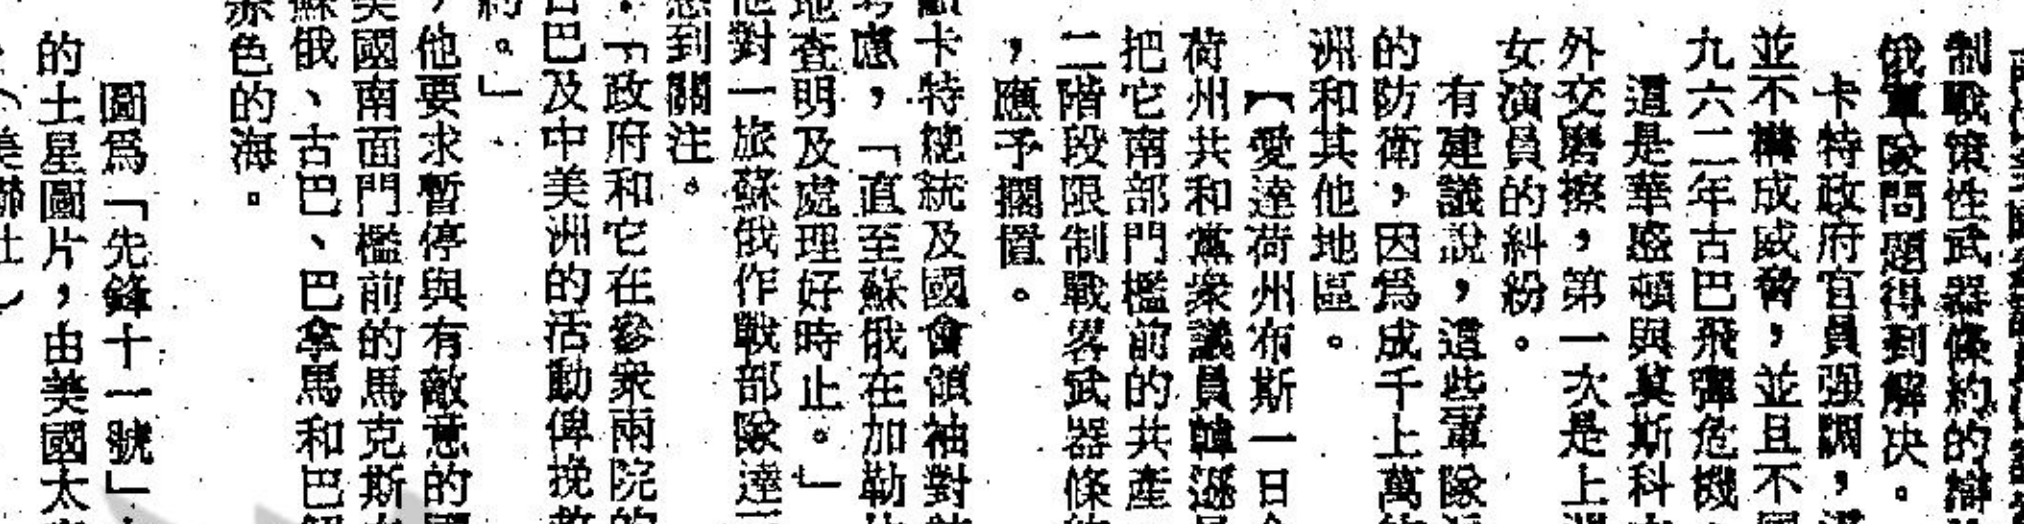 制戰策性武器條約的辯
俄軍隊問題得到解決。
卡特政府官員强調，
並不構成威脅，並且不
九六二年古巴飛彈危機
這是華盛頓與莫斯科
外交磨擦，第一次是上
女演員的糾紛。
有建議說，這些軍隊
的防衛，因爲成千上萬
洲和其他地區。
【愛達荷州布斯一日
荷州共和黨衆議員韓
把它南部門檻前的共產
二階段限制戰畧武器條
，應予擱置。
卡特總統及國會領袖對
考慮，「直至蘇俄在加勒
地查明及處理好時止。」
他對一旅蘇俄作戰部隊達
感到關注。
：「政府和它在參衆兩院的
古巴及中美洲的活動俾挽救
約。」
，他要求暫停與有敵意的
美國南面門檻前的馬克斯
蘇俄、古巴、巴拿馬和巴
赤色的海。
圖爲「先鋒十一號」
的土星圖片，由美國太
（美聯社）